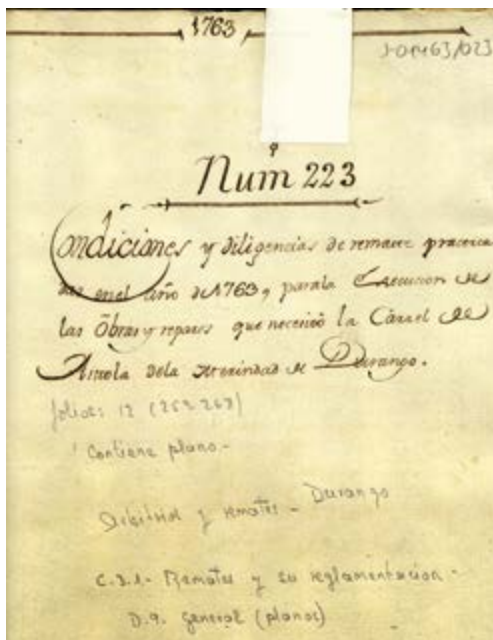 1763
J-01463/023
Numº 223
Condiciones y diligencias de remate practica
das en el año de 1763, para la Execucion de
las Obras y reparos que necesitó la Carzel de
Astola dela Merindad de Durango.
folios: 12 (252-263)
Contiene plano.-
y remates - Durango
C.3.1- Remates y su reglamentacion -
D.9. General (planos)